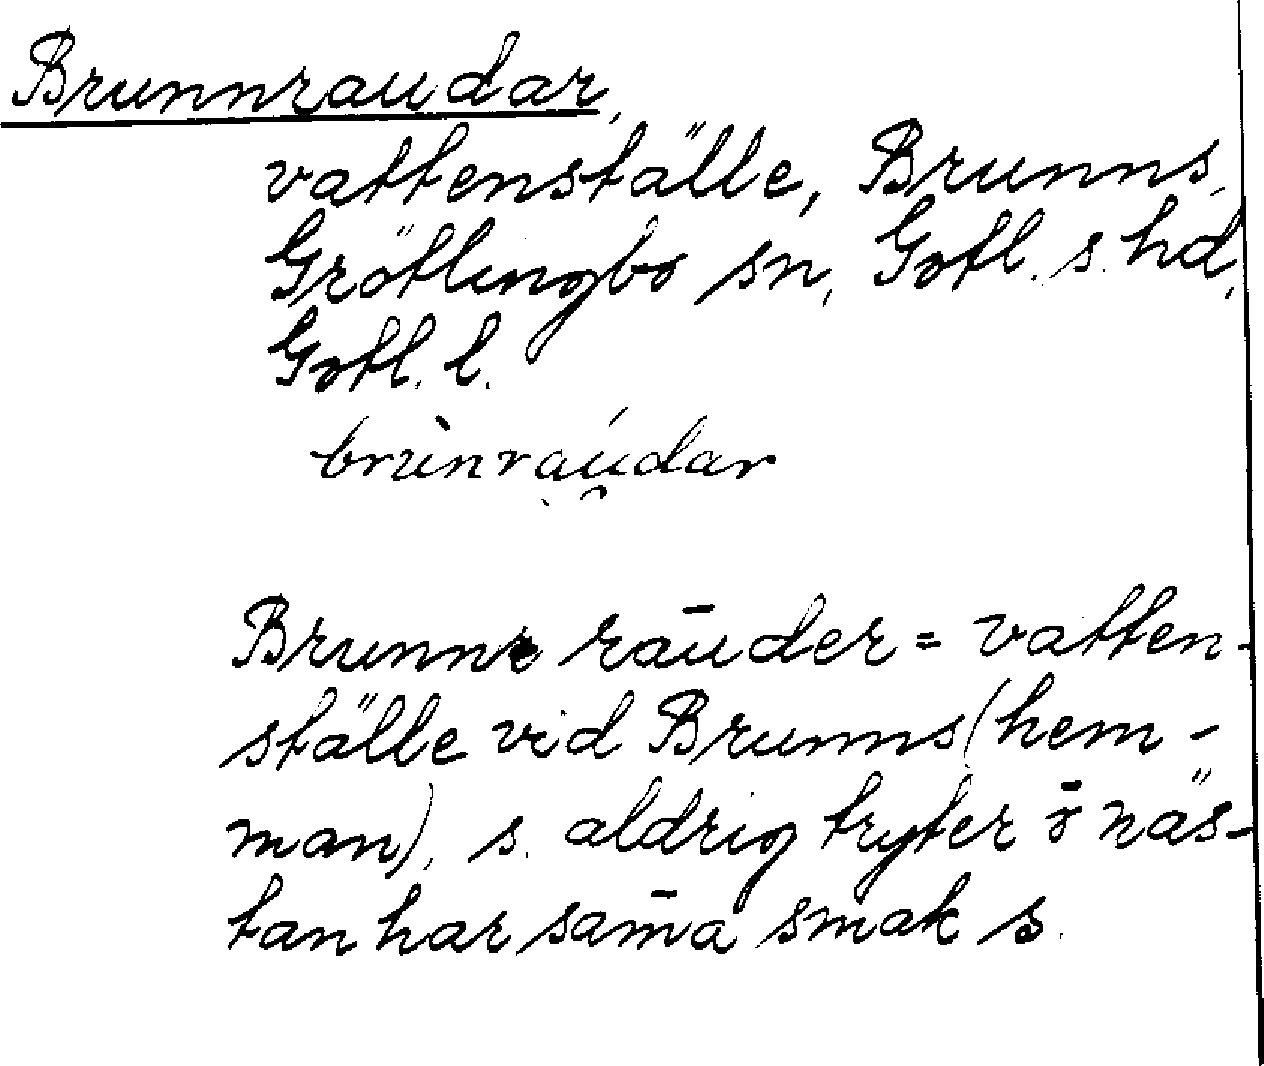 Brunnraudar,
vattenställe, Brunns,
Grötlingbo sn, Gotl. s. hd,
Gotl. l.
brùnraúdar
Brunn rāuder = vatten-
ställe vid Brunns (hem-
man), s. aldrig tryter o näs-
tan har sam̄a smak s.